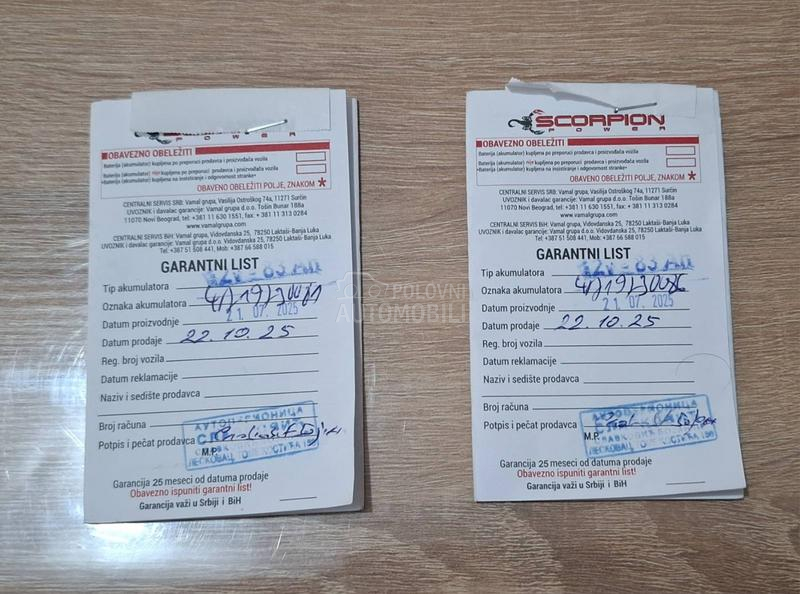 POWER
OBAVEZNO OBELEŽITI
Baterija (akumulator) kupljena po preporuci prodavca i proizvođača vozila
Baterija (akumulator) nije kupljena po preporuci prodavca i proizvođača vozila
•Baterija (akumulator) kupljena na insistiranje i odgovornost stranke•
OBAVENO OBELEŽITI POLJE, ZNAKOM *
CENTRALNI SERVIS SRB: Vamal grupa, Vasilija Ostroškog 74a, 11271 Surčin
UVOZNIK i davalac garancije: Vamal grupa d.o.o. Tošin Bunar 188a
11070 Novi Beograd, tel: +381 11 630 1551, fax: +381 11 313 0284
www.vamalgrupa.com
CENTRALNI SERVIS BiH: Vamal grupa, Vidovdanska 25, 78250 Laktaši-Banja Luka
UVOZNIK i davalac garancije: Vamal grupa d.o.o. Vidovdanska 25, 78250 Laktaši-Banja Luka
Tel: +387 51 508 441, Mob: +387 66 588 015
GARANTNI LIST
Tip akumulatora 12V - 83 Ah
Oznaka akumulatora
Datum proizvodnje 21. 07. 2025
Datum prodaje 22.10.25
Reg. broj vozila
Datum reklamacije
Naziv i sedište prodavca
Broj računa
Potpis i pečat prodavca
М.P.
АУТОПЕРИОНИЦА
ЛЕСКОВАЦ
Garancija 25 meseci od datuma prodaje
Obavezno ispuniti garantni list!
Garancija važi u Srbiji i BiH
SCORPION
POWER
OBAVEZNO OBELEŽITI
Baterija (akumulator) kupljena po preporuci prodavca i proizvođača vozila
Baterija (akumulator) nije kupljena po preporuci prodavca i proizvođača vozila
•Baterija (akumulator) kupljena na insistiranje i odgovornost stranke•
OBAVENO OBELEŽITI POLJE, ZNAKOM *
CENTRALNI SERVIS SRB: Vamal grupa, Vasilija Ostroškog 74a, 11271 Surčin
UVOZNIK i davalac garancije: Vamal grupa d.o.o. Tošin Bunar 188a
11070 Novi Beograd, tel: +381 11 630 1551, fax: +381 11 313 0284
www.vamalgrupa.com
CENTRALNI SERVIS BiH: Vamal grupa, Vidovdanska 25, 78250 Laktaši-Banja Luka
UVOZNIK i davalac garancije: Vamal grupa d.o.o. Vidovdanska 25, 78250 Laktaši-Banja Luka
Tel: +387 51 508 441, Mob: +387 66 588 015
GARANTNI LIST
Tip akumulatora 12V - 83 Ah
Oznaka akumulatora
Datum proizvodnje 21. 07. 2025
Datum prodaje 22.10.25
Reg. broj vozila
Datum reklamacije
Naziv i sedište prodavca
Broj računa
Potpis i pečat prodavca
M.P.
ЛЕСКОВАЦ
Garancija 25 meseci od datuma prodaje
Obavezno ispuniti garantni list!
Garancija važi u Srbiji i BiH
POLOVNI
AUTOMOBILI